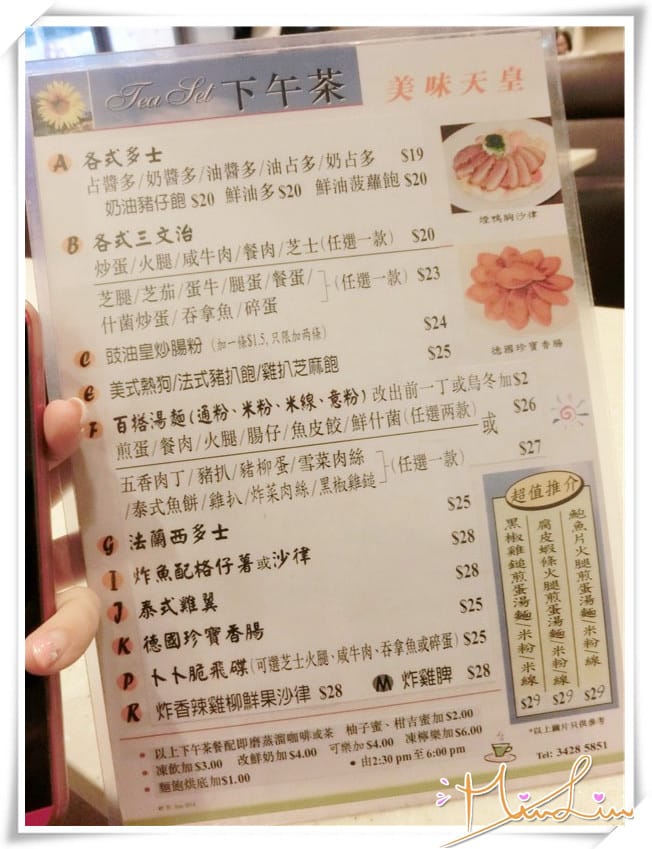 Tea Set 下午茶 美味天皇
A 各式多士
占醬多/奶醬多/油醬多/油占多/奶占多 $19
奶油豬仔飽 $20 鮮油多 $20 鮮油菠蘿飽 $20
煙鴨胸沙律
B 各式三文治
炒蛋/火腿/咸牛肉/餐肉/芝士(任選一款) $20
芝腿/芝茄/蛋牛/腿蛋/餐蛋/
什菌炒蛋/吞拿魚/碎蛋
(任選一款) $23
德國珍寶香腸
C 豉油皇炒腸粉 (加一條$1.5,只限加兩條) $24
E 美式熱狗/法式豬扒飽/雞扒芝麻飽 $25
F 百搭湯麵(通粉、米粉、米線、意粉)改出前一丁或烏冬加$2
煎蛋/餐肉/火腿/腸仔/魚皮餃/鮮什菌(任選兩款)或 $26
五香肉丁/豬扒/豬柳蛋/雪菜肉絲
/泰式魚餅/雞扒/炸菜肉絲/黑椒雞鎚
(任選一款) $27
G 法蘭西多士 $25
I 炸魚配格仔薯或沙律 $28
J 泰式雞翼 $28
K 德國珍寶香腸 $25
P 卜卜脆飛碟(可選芝士火腿、咸牛肉、吞拿魚或碎蛋) $25
R 炸香辣雞柳鮮果沙律 $28 M 炸雞髀 $28
超值推介
鮑魚片火腿煎蛋湯麵/米粉/米線 $29
腐皮蝦條火腿煎蛋湯麵/米粉/米線 $29
黑椒雞鎚煎蛋湯麵/米粉/米線 $29
*以上圖片只供參考
Tel: 3428 5851
• 以上下午茶餐配即磨蒸溜咖啡或茶 柚子蜜、柑桔蜜加$2.00
• 凍飲加$3.00 改鮮奶加$4.00 可樂加$4.00 凍檸樂加$6.00
• 麵飽烘底加$1.00 • 由2:30 pm 至 6:00 pm
MinLin